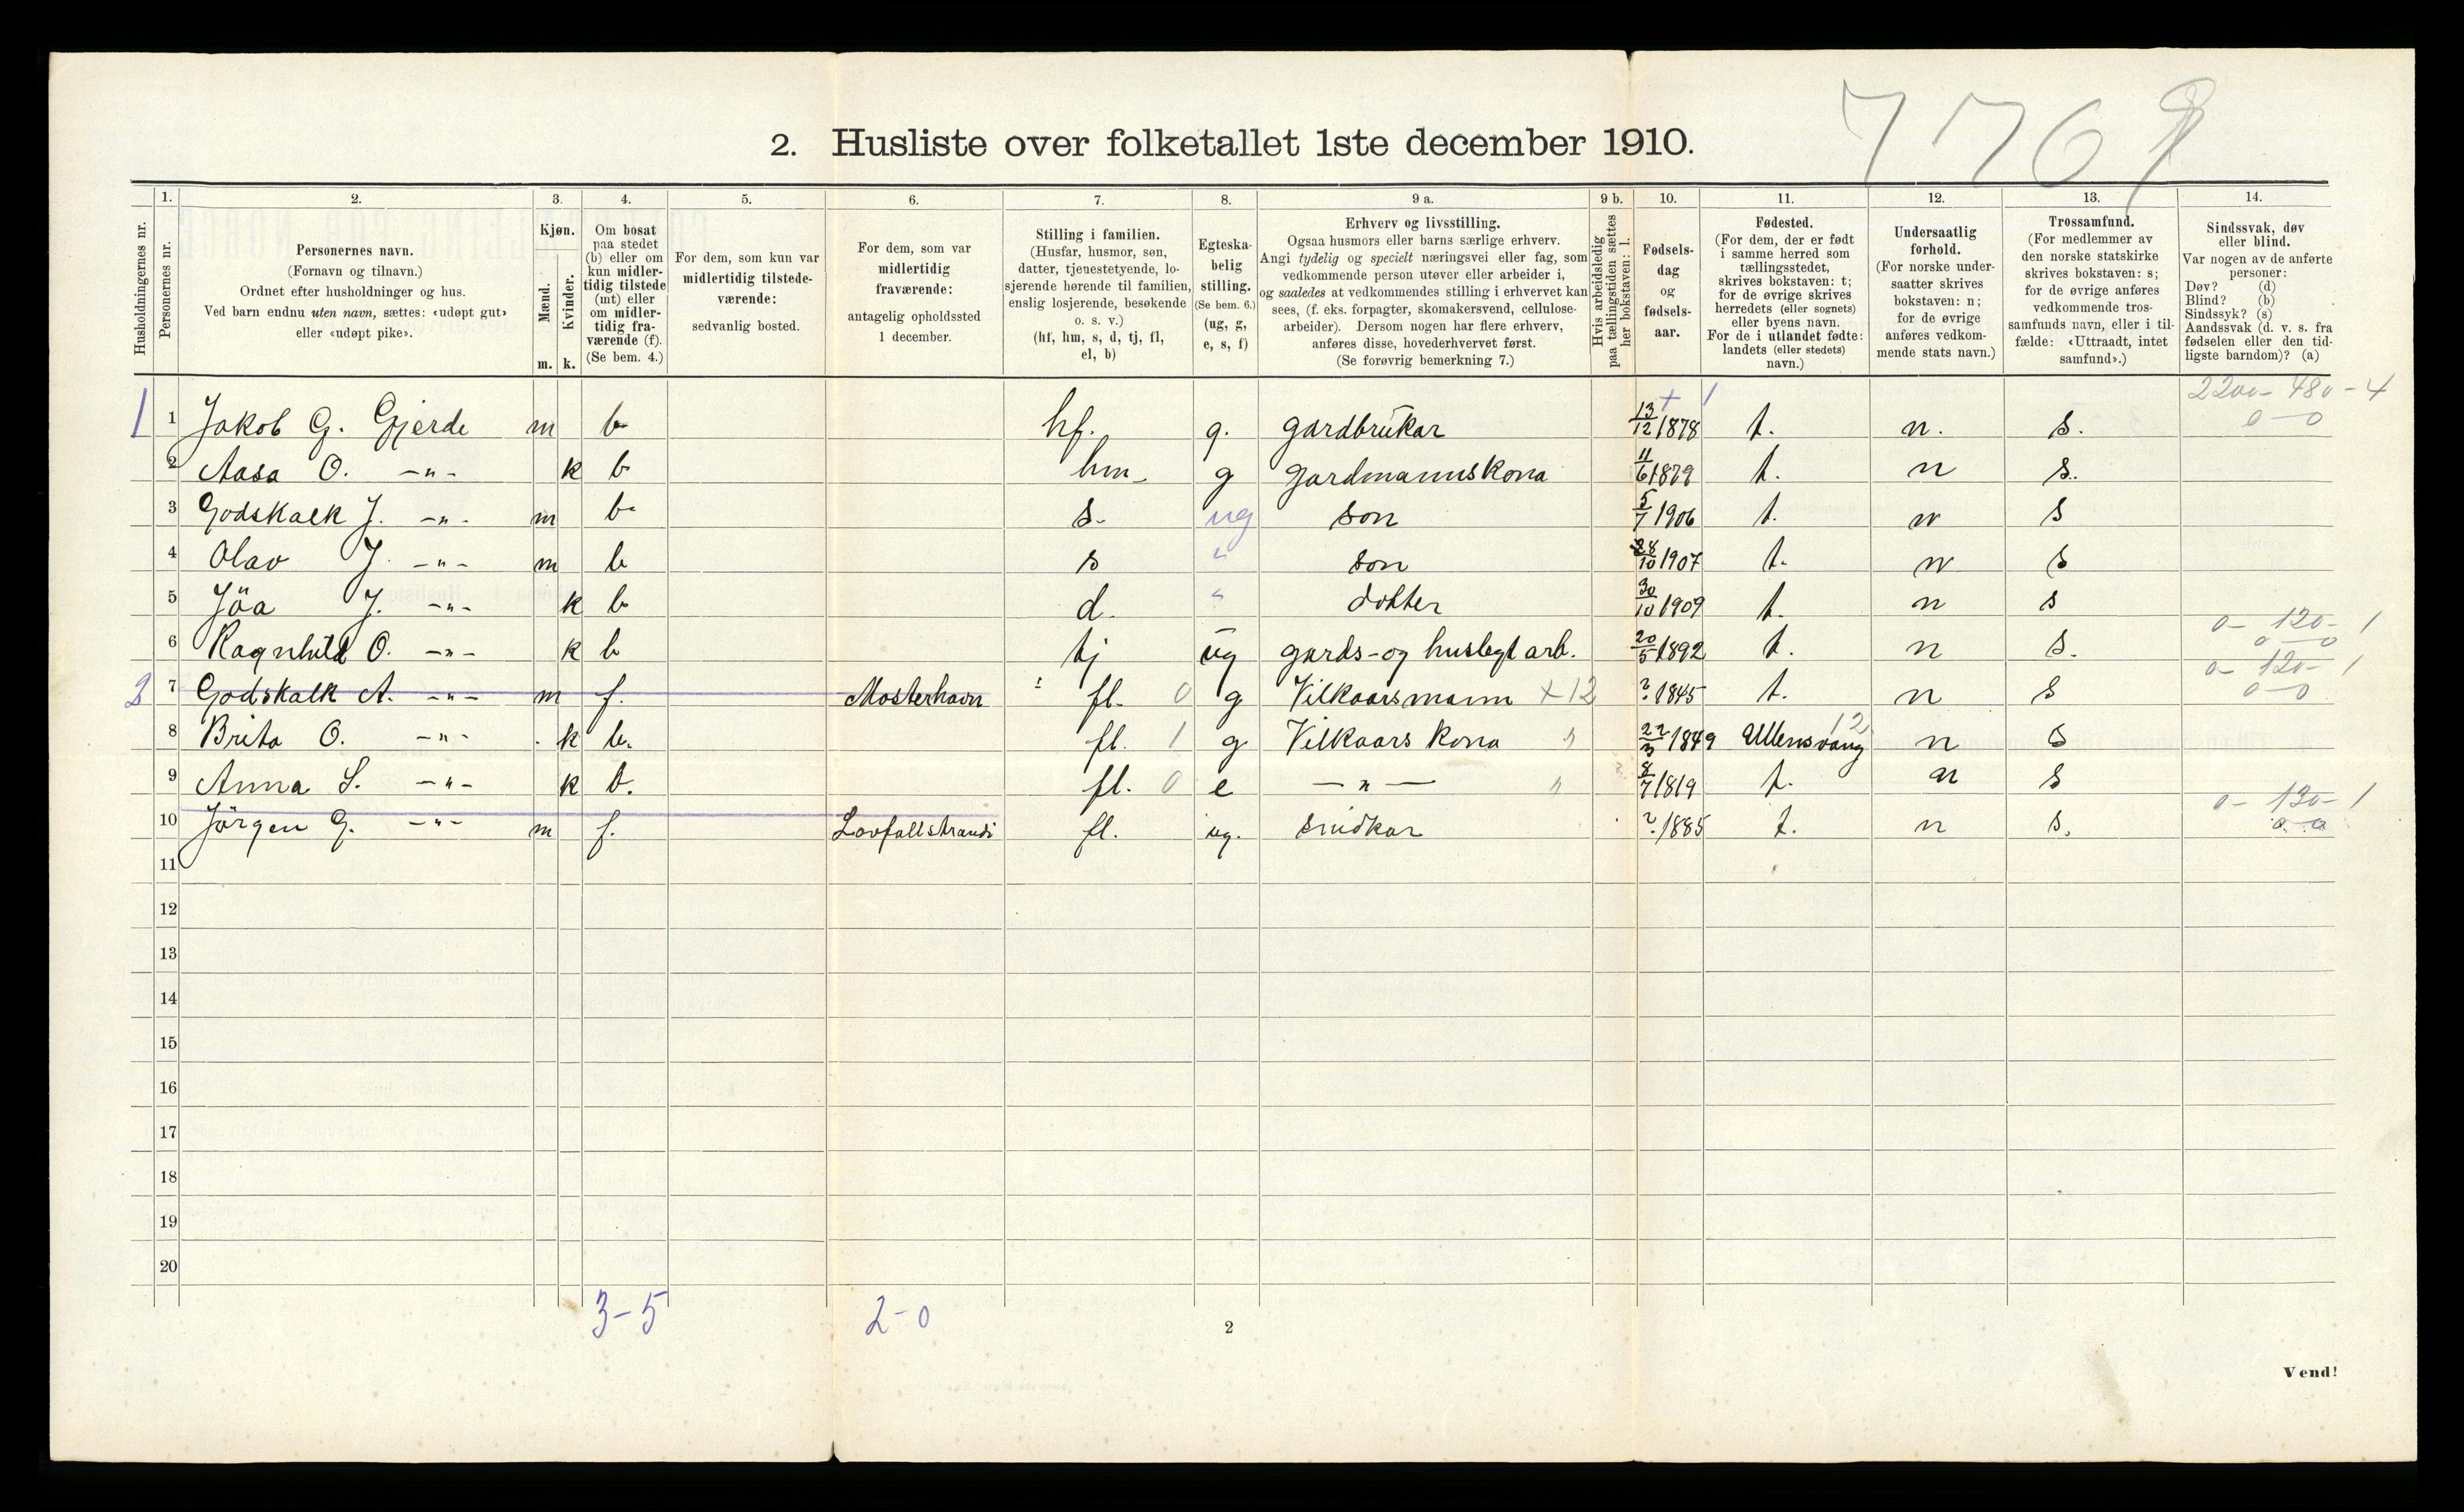 7769
2. Husliste over folketallet 1ste december 1910.
Husholdningernes nr.
1. Personernes nr.
2. Personernes navn. (Fornavn og tilnavn.) Ordnet efter husholdninger og hus. Ved barn endnu uten navn, sættes: «udøpt gut» eller «udøpt pike».
3. Kjøn. Mænd. m. Kvinder. k.
4. Om bosat paa stedet (b) eller om kun midlertidig tilstede (mt) eller om midlertidig fraværende (f). (Se bem. 4.)
5. For dem, som kun var midlertidig tilstedeværende: sedvanlig bosted.
6. For dem, som var midlertidig fraværende: antagelig opholdssted 1 december.
7. Stilling i familien. (Husfar, husmor, søn, datter, tjenestetyende, losjerende hørende til familien, enslig losjerende, besøkende o. s. v.) (hf, hm, s, d, tj, fl, el, b)
8. Egteskabelig stilling. (Se bem. 6.) (ug, g, e, s, f)
9 a. Erhverv og livsstilling. Ogsaa husmors eller barns særlige erhverv. Angi tydelig og specielt næringsvei eller fag, som vedkommende person utøver eller arbeider i, og saaledes at vedkommendes stilling i erhvervet kan sees, (f. eks. forpagter, skomakersvend, cellulose-arbeider). Dersom nogen har flere erhverv, anføres disse, hovederhvervet først. (Se forøvrig bemerkning 7.)
9 b. Hvis arbeidsledig paa tællingstiden sættes her bokstaven: l.
10. Fødselsdag og fødselsaar.
11. Fødested. (For dem, der er født i samme herred som tællingsstedet, skrives bokstaven: t; for de øvrige skrives herredets (eller sognets) eller byens navn. For de i utlandet fødte: landets (eller stedets) navn.)
12. Undersaatlig forhold. (For norske undersaatter skrives bokstaven: n; for de øvrige anføres vedkommende stats navn.)
13. Trossamfund. (For medlemmer av den norske statskirke skrives bokstaven: s; for de øvrige anføres vedkommende trossamfunds navn, eller i tilfælde: «Uttraadt, intet samfund».)
14. Sindssvak, døv eller blind. Var nogen av de anførte personer: Døv? (d) Blind? (b) Sindssyk? (s) Aandssvak (d. v. s. fra fødselen eller den tidligste barndom)? (a)
2200-480-4
1 1 Jakob G. Gjerde m b hf. g. gardbrukar 13/12 1878 t. n. s. 0-0
2 Aasa O. -"- k b hm g gardmannskona 11/6 1879 t. n s.
3 Godskalk J. -"- m b s. ug son 5/7 1906 t. n s
4 Olav J. -"- m b s " son 28/10 1907 t. n s
5 Jöa J. -"- k b d. " dotter 30/10 1909 t. n s
0-120-1
6 Ragnhild O. -"- k b tj ug gards-og huslegt arb. 20/5 1892 t. n s. 0-0
0-120-1
2 7 Godskalk A. -"- m f. Mosterhavn fl. 0 g Vilkaarsmann +12 ? 1845 t. n s 0-0
8 Brita O. -"- k b. fl. 1 g Vilkaars kona 22/3 1849 Ullensvang 12 n s
9 Anna S. -"- k b. fl. 0 e -"- 8/7 1819 t. n s
0-130-1
10 Jörgen G. -"- m f. Lovfallstrand fl. ug. snidkar ? 1885 t. n s. 0-0
11
12
13
14
15
16
17
18
19
20
3-5 2-0
2
Vend!